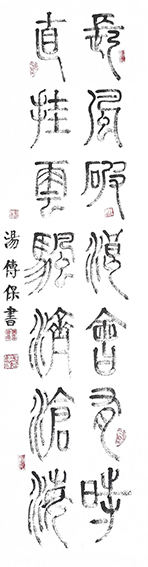 長風破浪會有時
直挂雲颿濟滄海
湯傳保書